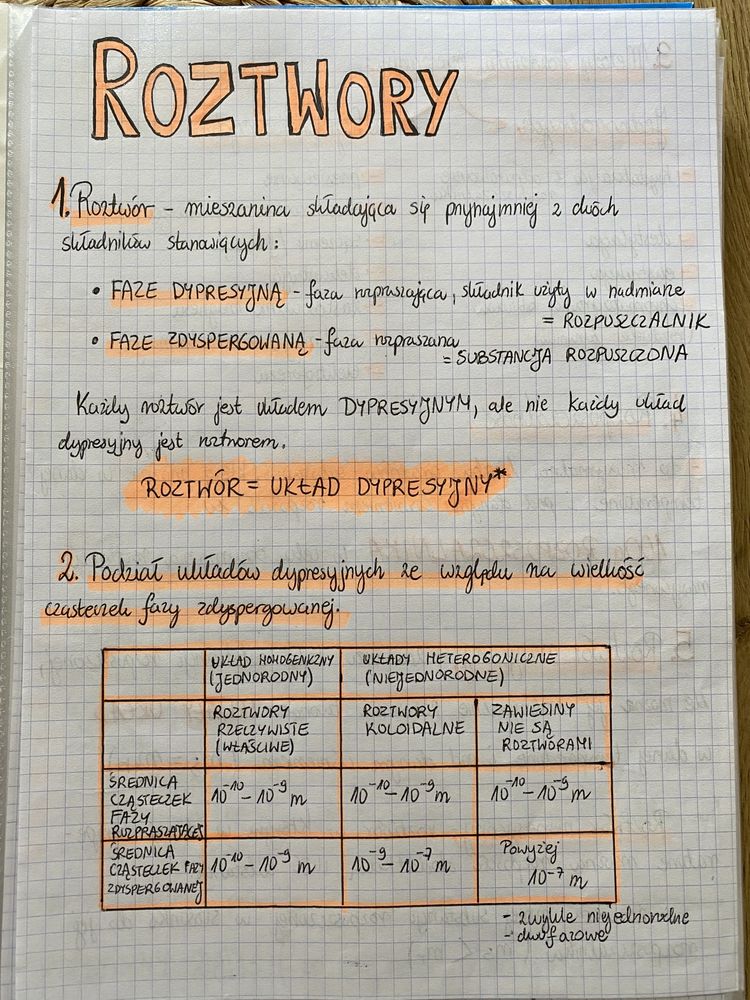 ROZTWORY
1. Roztwór – mieszanina składająca się przynajmniej z dwóch
składników stanowiących:
• FAZE DYPRESYJNĄ – faza rozpraszająca, składnik użyty w nadmiarze
= ROZPUSZCZALNIK
• FAZE ZDYSPERGOWANĄ – faza rozpraszana
= SUBSTANCJA ROZPUSZCZONA
Każdy roztwór jest układem DYPRESYJNYM, ale nie każdy układ
dypresyjny jest roztworem.
ROZTWÓR = UKŁAD DYPRESYJNY*
2. Podział układów dypresyjnych ze względu na wielkość
cząsteczek fazy zdyspergowanej.
UKŁAD HOMOGENICZNY (JEDNORODNY)
UKŁADY HETEROGONICZNE (NIEJEDNORODNE)
ROZTWORY RZECZYWISTE (WŁAŚCIWE)
ROZTWORY KOLOIDALNE
ZAWIESINY NIE SĄ ROZTWÓRAMI
ŚREDNICA CZĄSTECZEK FAZY ROZPRASZAJĄCEJ
10⁻¹⁰ – 10⁻⁹ m
10⁻¹⁰ – 10⁻⁹ m
10⁻¹⁰ – 10⁻⁹ m
ŚREDNICA CZĄSTECZEK FAZY ZDYSPERGOWANEJ
10⁻¹⁰ – 10⁻⁹ m
10⁻⁹ – 10⁻⁷ m
Powyżej 10⁻⁷ m
- zwykle niejednorodne
- dwufazowe